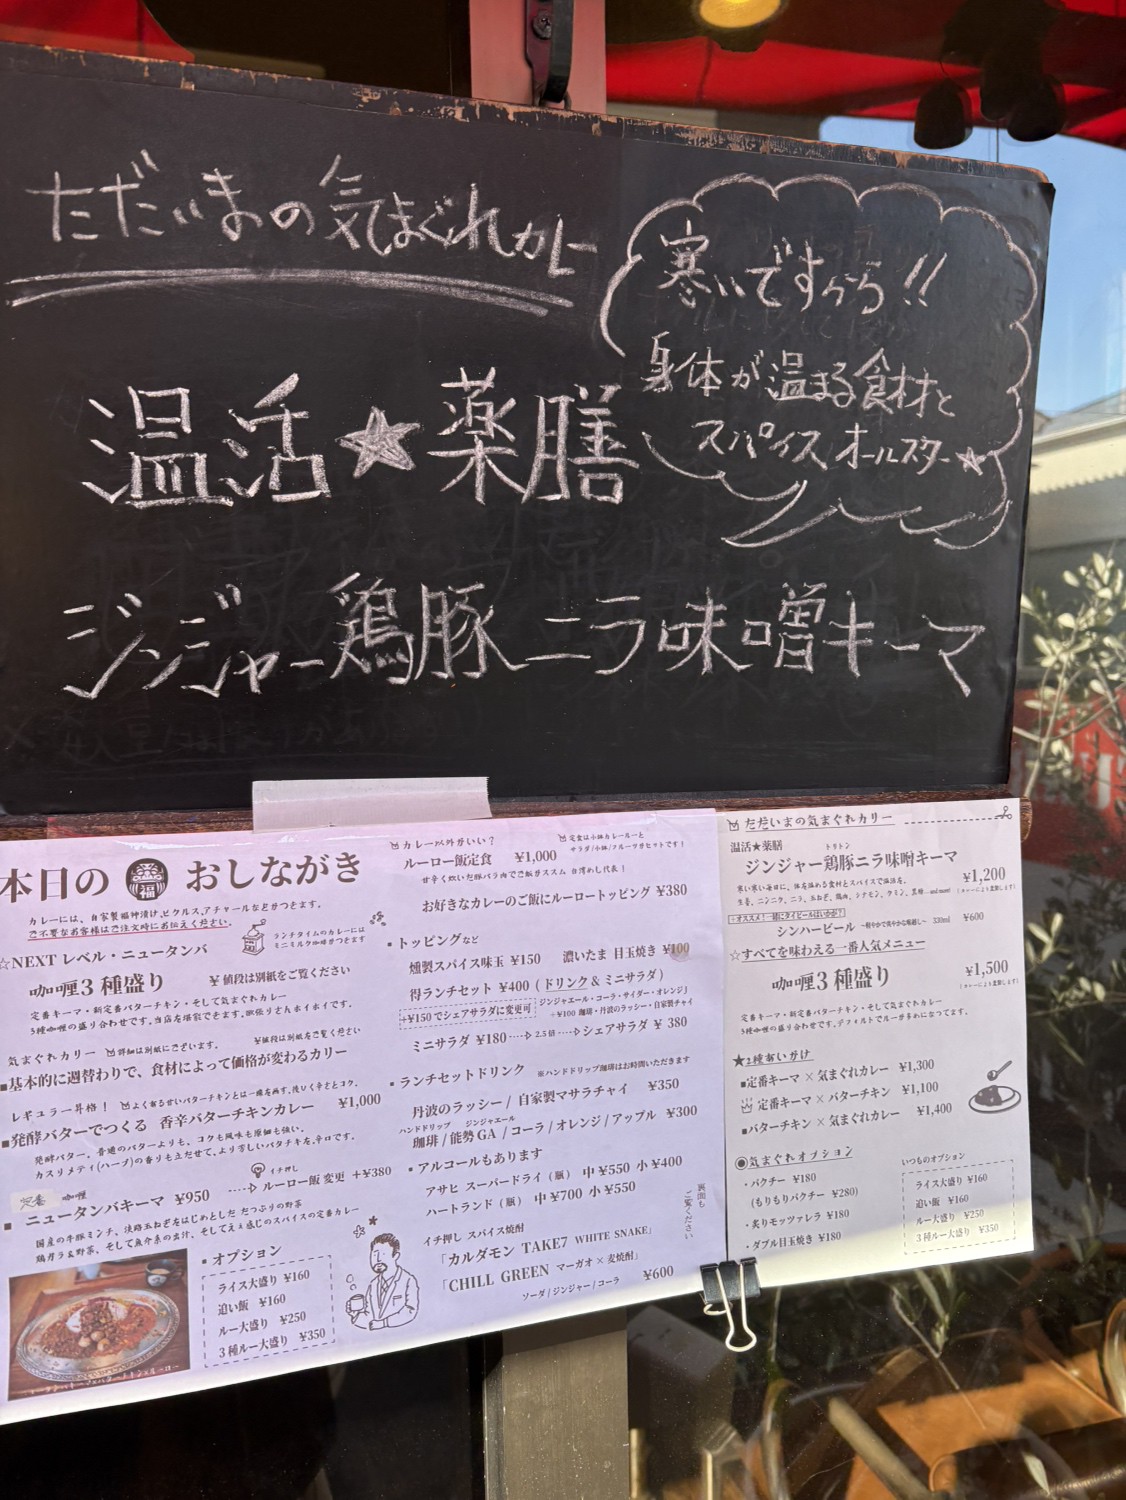 ただいまの気まぐれカレー
寒いですから!!
身体が温まる食材と
スパイスオールスター☆
温活★薬膳
ジンジャー鶏豚ニラ味噌キーマ
本日の 福 おしながき
カレーには、自家製福神漬け、ピクルス、アチャールなどがつきます。
ご不要なお客様はご注文時にお伝えください。
ランチタイムのカレーには
ミニミルク珈琲がつきます
☆NEXTレベル・ニュータンバ
咖喱3種盛り ¥値段は別紙をご覧ください
定番キーマ・新定番バターチキン・そして気まぐれカレー
3種咖喱の盛り合わせです。当店を堪能できます。欲張りさんホイホイです。
気まぐれカリー 詳細は別紙にございます。 ¥値段は別紙をご覧ください
■基本的に週替わりで、食材によって価格が変わるカリー
レギュラー昇格! よくあるせいバターチキンとは一線を画す。後ひく辛さとコク。
■発酵バターでつくる 香辛バターチキンカレー ¥1,000
発酵バター、普通のバターよりも、コクも風味も原価も強い。
カスリメティ(ハーブ)の香りも立たせて、より芳しいバタチキを。辛口です。
イチ押し
定番 咖喱
■ ニュータンバキーマ ¥950 ····▷ ルーロー飯 変更 +¥380
国産の牛豚ミンチ、淡路玉ねぎをはじめとした だつぷりの野菜
鶏ガラ&野菜、そして魚介系の出汁、そしてええ感じのスパイスの定番カレー
・オプション
ライス大盛り ¥160
追い飯 ¥160
ルー大盛り ¥250
3種ルー大盛り ¥350
カレー以外がいい?
ルーロー飯定食 ¥1,000
定食は小鉢カレールーと
サラダ/小鉢/フルーツがセットです!
甘辛く炊いた豚バラ肉でご飯がススム 台湾めし代表!
お好きなカレーのご飯にルーロートッピング ¥380
・トッピングなど
燻製スパイス味玉 ¥150 濃いたま 目玉焼き ¥100
得ランチセット ¥400 (ドリンク&ミニサラダ)
+¥150でシェアサラダに変更可
ジンジャエール・コーラ・サイダー・オレンジ
+¥100 珈琲・丹波のラッシー・自家製チャイ
ミニサラダ ¥180 ····▷ 2.5倍 ····▷ シェアサラダ ¥380
・ランチセットドリンク ※ハンドドリップ珈琲はお時間いただきます
丹波のラッシー/自家製マサラチャイ ¥350
ハンドドリップ ジンジャエール
珈琲/能勢GA/コーラ/オレンジ/アップル ¥300
・アルコールもあります
アサヒ スーパードライ(瓶) 中¥550 小¥400
ハートランド(瓶) 中¥700 小¥550
裏面も
ご覧ください
イチ押し スパイス焼酎
「カルダモン TAKE7 WHITE SNAKE」
「CHILL GREEN マーガオ×麦焼酎」
ソーダ/ジンジャー/コーラ ¥600
ただいまの気まぐれカリー
温活★薬膳
トリトン
ジンジャー鶏豚ニラ味噌キーマ
¥1,200
寒い寒い毎日に、体を温める食材とスパイスで温活を。
オススメ!一緒にタイビールはいかが?
シンハービール ~軽やかで爽やかな喉越し~ 330ml ¥600
☆すべてを味わえる一番人気メニュー
咖喱3種盛り
¥1,500
定番キーマ・新定番バターチキン・そして気まぐれカレー
3種咖喱の盛り合わせです。デフォルトでルーが多めになってます。
★2種あいがけ
■定番キーマ × 気まぐれカレー ¥1,300
定番キーマ × バターチキン ¥1,100
■バターチキン × 気まぐれカレー ¥1,400
◉気まぐれオプション
・パクチー ¥180
(もりもりパクチー ¥280)
・炙りモッツァレラ ¥180
・ダブル目玉焼き ¥180
いつものオプション
ライス大盛り ¥160
追い飯 ¥160
ルー大盛り ¥250
3種ルー大盛り ¥350